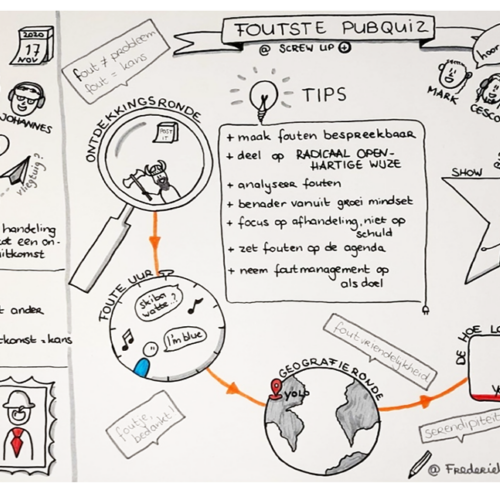 2020
17
NOV
JOHANNES
vliegtuig?
handeling
tot een on-
uitkomst
t ander
ckomst = kans
FOUTSTE PUBQUIZ
@ SCREW UP
fout ≠ probleem
fout = kans
ONTDEKKINGSRONDE
POST
IT
TIPS
+ maak fouten bespreekbaar
+ deel op RADICAAL OPEN-
HARTIGE WIJZE
+ analyseer fouten
+ benader vanuit groei mindset
+ focus op afhandeling, niet op
schuld
+ zet fouten op de agenda
+ neem foutmanagement op
als doel
hoor
MARK
CESCO
SHOW
FOUTE UUR
skiba
watte..?
I'm blue
foutje,
bedankt!
GEOGRAFIERONDE
YOLO
foutvriendelijkheid
DE HOE L
serendipiteit
@ Frederiek